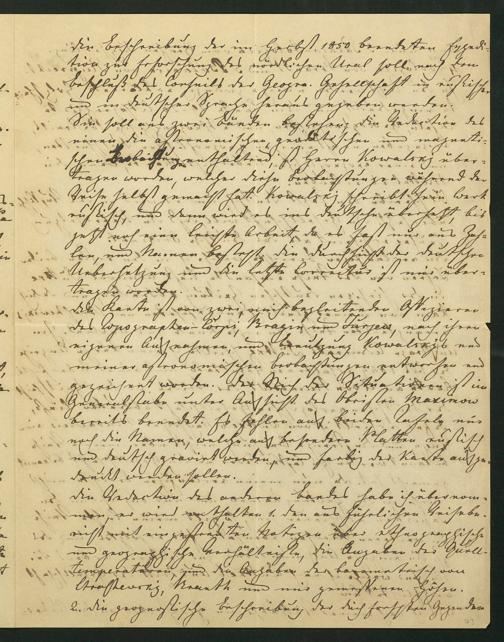 die Beschreibung der im Herbst 1850 beendeten Expedi-
tion zur Erforschung des nördlichen Ural soll nach dem
Beschluß des Conseils der Geogra. Gesellschaft in russischer
und in deutscher Sprache heraus gegeben werden.
Sie soll aus zwei Bänden bestehen; die Redaction des
einen, die astronomischen, geodätischen und magneti-
schen Beobachtungen enthaltend, ist Herrn Kowalsky über-
tragen worden, welcher diese Beobachtungen während der
Reise selbst gemacht hat. Kowalsky schreibt sein Werk
russisch, und dann wird es ins deutsche übersetzt bis
jetzt noch eine leichte Arbeit da es fast nur aus Zah-
len und Namen besteht; die Durchsicht der deutschen
Uebersetzung und die letzte Correctur ist mir über-
tragen worden.
Die Karte ist von zwei, mich begleitenden Offizieren
des Topographen-Corps, Bragin und Jurjew, nach ihren
eigenen Aufnahmen, und Benutzung Kowalsky's und
meiner astronomischen Beobachtungen entworfen und
gezeichnet worden. Der Stich der Situationen ist im
Generalstabe unter Aufsicht des Obristen Maximow
bereits beendet. Es fehlen auf beiden Tafeln nur
noch die Namen, welche auf besondern Platten russisch
und deutsch gravirt werden, und farbig der Karte aufge-
druckt werden sollen.
Die Redaction des anderen Bandes habe ich übernom-
men, er wird enthalten 1. den ausführlichen Reisebe-
richt mit eingestreuten Notizen über ethnographische
und geographische Verhältnisse, die Angaben der Quell-
temperaturen und die Angaben der barometrisch von
und mir gemessenen Höhen.
2. die geognostische Beschreibung der durchforschten Gegenden